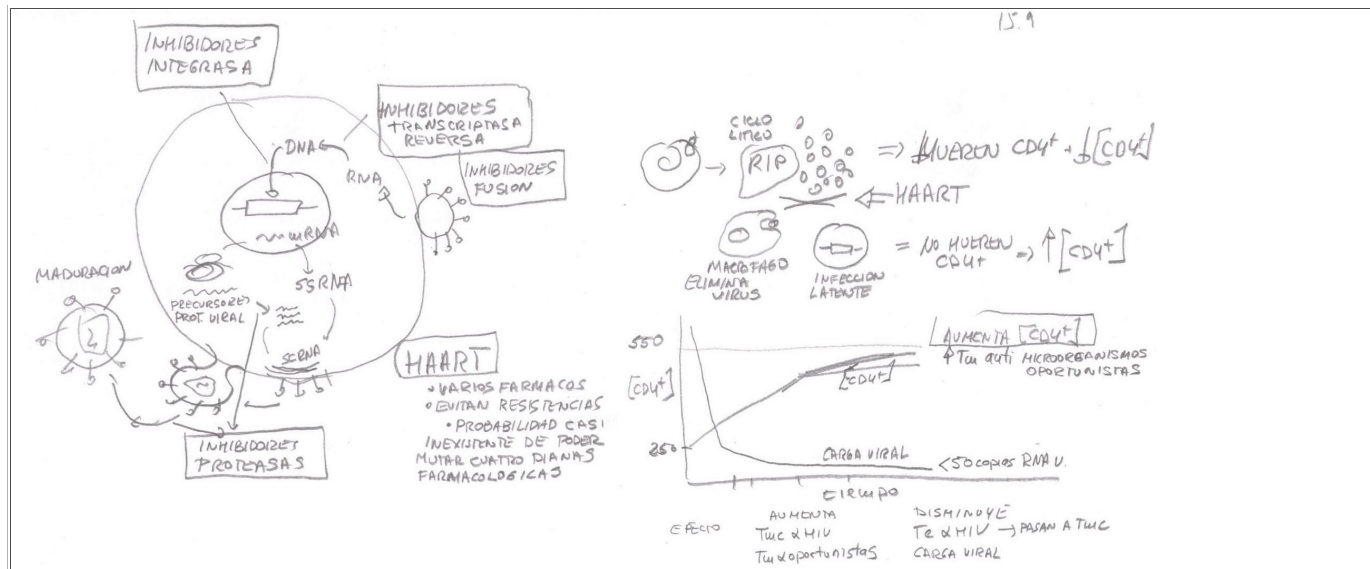 15.9
INHIBIDORES
INTEGRASA
INHIBIDORES
TRANSCRIPTASA
REVERSA
INHIBIDORES
FUSION
DNA
RNA
mRNA
SSRNA
PRECURSORES
PROT. VIRAL
MADURACION
SCRNA
INHIBIDORES
PROTEASAS
HAART
• VARIOS FARMACOS
• EVITAN RESISTENCIAS
• PROBABILIDAD CASI
INEXISTENTE DE PODER
MUTAR CUATRO DIANAS
FARMACOLOGICAS
CICLO
LITICO
RIP
⇒ MUEREN CD4+ ↓[CD4+]
⇐ HAART
MACROFAGO
ELIMINA
VIRUS
INFECCION
LATENTE
= NO MUEREN
CD4+ ⇒ ↑[CD4+]
550
[CD4+]
250
[CD4+]
CARGA VIRAL
<50 copias RNA V.
TIEMPO
AUMENTA [CD4+]
↑ Tm anti MICROORGANISMOS
OPORTUNISTAS
EFECTO
AUMENTA
Tmc α HIV
Tm α oportunistas
DISMINUYE
Te α HIV → PASAN A TMC
CARGA VIRAL